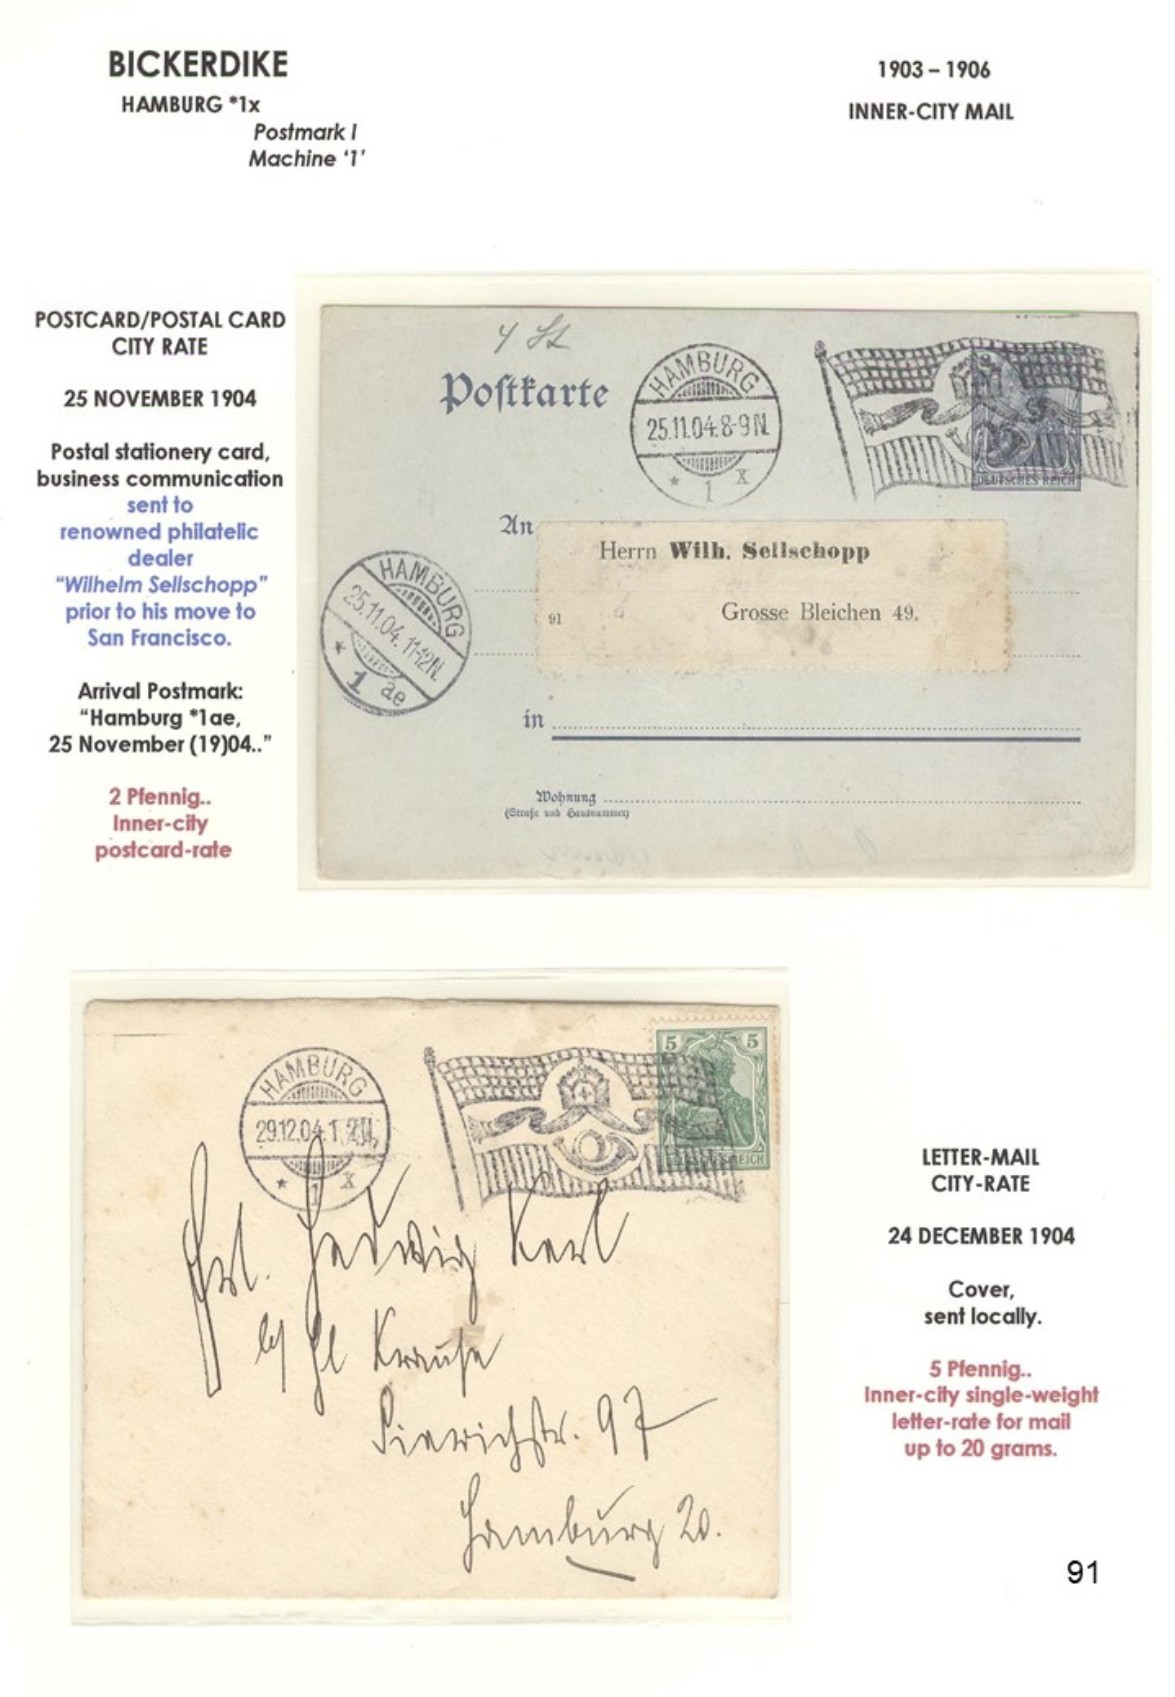 BICKERDIKE
HAMBURG *1x
Postmark I
Machine ‘1’
1903 – 1906
INNER-CITY MAIL
POSTCARD/POSTAL CARD
CITY RATE
25 NOVEMBER 1904
Postal stationery card,
business communication
sent to
renowned philatelic
dealer
“Wilhelm Sellschopp”
prior to his move to
San Francisco.
Arrival Postmark:
“Hamburg *1ae,
25 November (19)04..”
2 Pfennig..
Inner-city
postcard-rate
Postkarte
HAMBURG
25.11.04.8-9N.
* 1 x
DEUTSCHES REICH
An
Herrn Wilh. Sellschopp
91
Grosse Bleichen 49.
HAMBURG
25.11.04.11-12N.
* 1 ae
in
Wohnung
(Straße und Hausnummer)
HAMBURG
29.12.04.1
* 1 x
5 5
REICH
Frl. Hedwig Karl
Krause
97
Hamburg 20.
LETTER-MAIL
CITY-RATE
24 DECEMBER 1904
Cover,
sent locally.
5 Pfennig..
Inner-city single-weight
letter-rate for mail
up to 20 grams.
91